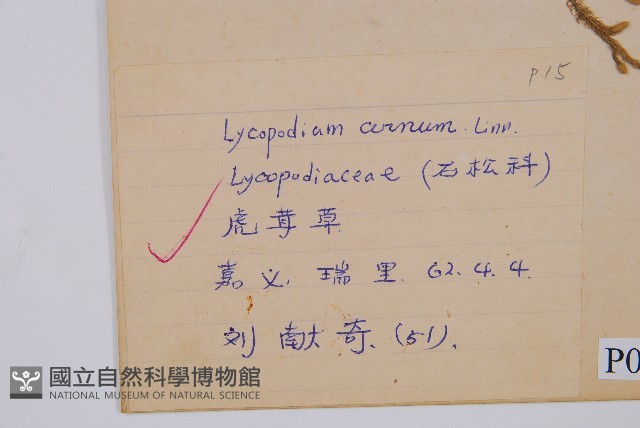 P15
Lycopodiam cernum. Linn.
Lycopodiaceae (石松科)
虎茸草
嘉义. 瑞里. 62. 4. 4.
刘献奇. (51).
P0
國立自然科學博物館
NATIONAL MUSEUM OF NATURAL SCIENCE